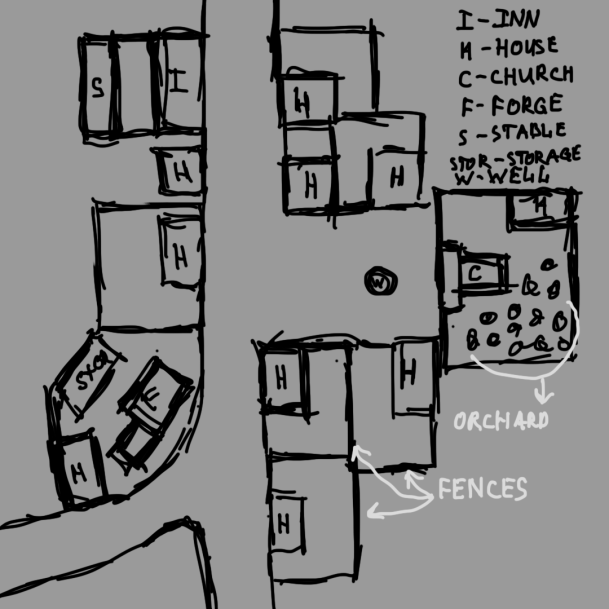 I-INN
H-HOUSE
C-CHURCH
F-FORGE
S-STABLE
STOR-STORAGE
W-WELL
S
I
H
H
H
H
H
H
W
C
STOR
F
H
H
H
H
ORCHARD
FENCES